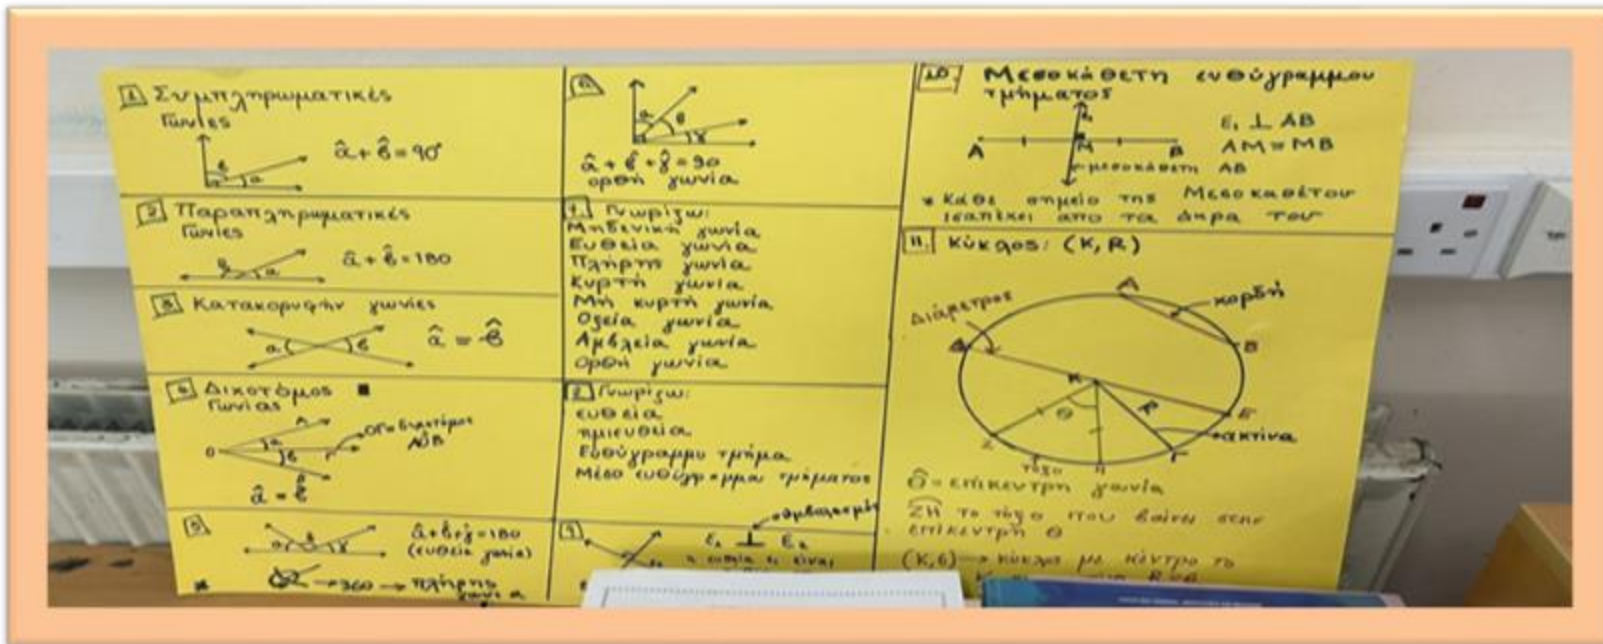 1 Συμπληρωματικές
Γωνίες
β
α
â + β̂ = 90°
2 Παραπληρωματικές
Γωνίες
β α
â + β̂ = 180
3 Κατακορυφήν γωνίες
α β
â = β̂
4 Διχοτόμος
Γωνίας
Α
α
Ο
β
Γ
ΟΓ= διχοτόμος
ΑÔΒ
Β
â = β̂
5.
α β γ
â+β̂+γ̂=180
(ευθεία γωνία)
* →360→ πλήρης
γωνία
6.
α β γ
â + β̂ + γ̂ = 90
ορθή γωνία
7. Γνωρίζω:
Μηδενική γωνία
Ευθεία γωνία
Πλήρης γωνία
Κυρτή γωνία
Μη κυρτή γωνία
Οξεία γωνία
Αμβλεία γωνία
Ορθή γωνία
8. Γνωρίζω:
ευθεία
ημιευθεία
Ευθύγραμμο τμήμα
Μέσο ευθύγραμμα τμήματος
9
συμβολισμός
ε₁ ⊥ ε₂
η ευθεία ε₁ είναι
10. Μεσοκάθετη ευθύγραμμου
τμήματος
ε₁
Α Μ Β
μεσοκάθετη ΑΒ
Ε₁ ⊥ ΑΒ
ΑΜ = ΜΒ
* Κάθε σημείο της Μεσοκαθέτου
ισαπέχει απο τα άκρα του
11. Κύκλος: (Κ, R)
Α
χορδή
Διάμετρος
Β
Δ
Κ
Θ
R
Ε
ακτίνα
Ζ
τόξο
Η
Γ
Θ̂ = επίκεντρη γωνία
ΖΗ το τόξο που βαίνει στην
επίκεντρη Θ
(Κ,6)→ κύκλος με κέντρο το